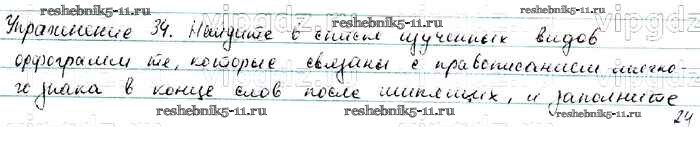 reshebnik5-11.ru reshebnik5-11.ru
Упражнение 34. Найдите в списке изученных видов
орфограмм те, которые связаны с правописанием мягко-
го знака в конце слов после шипящих, и заполните
reshebnik5-11.ru reshebnik5-11.ru
24